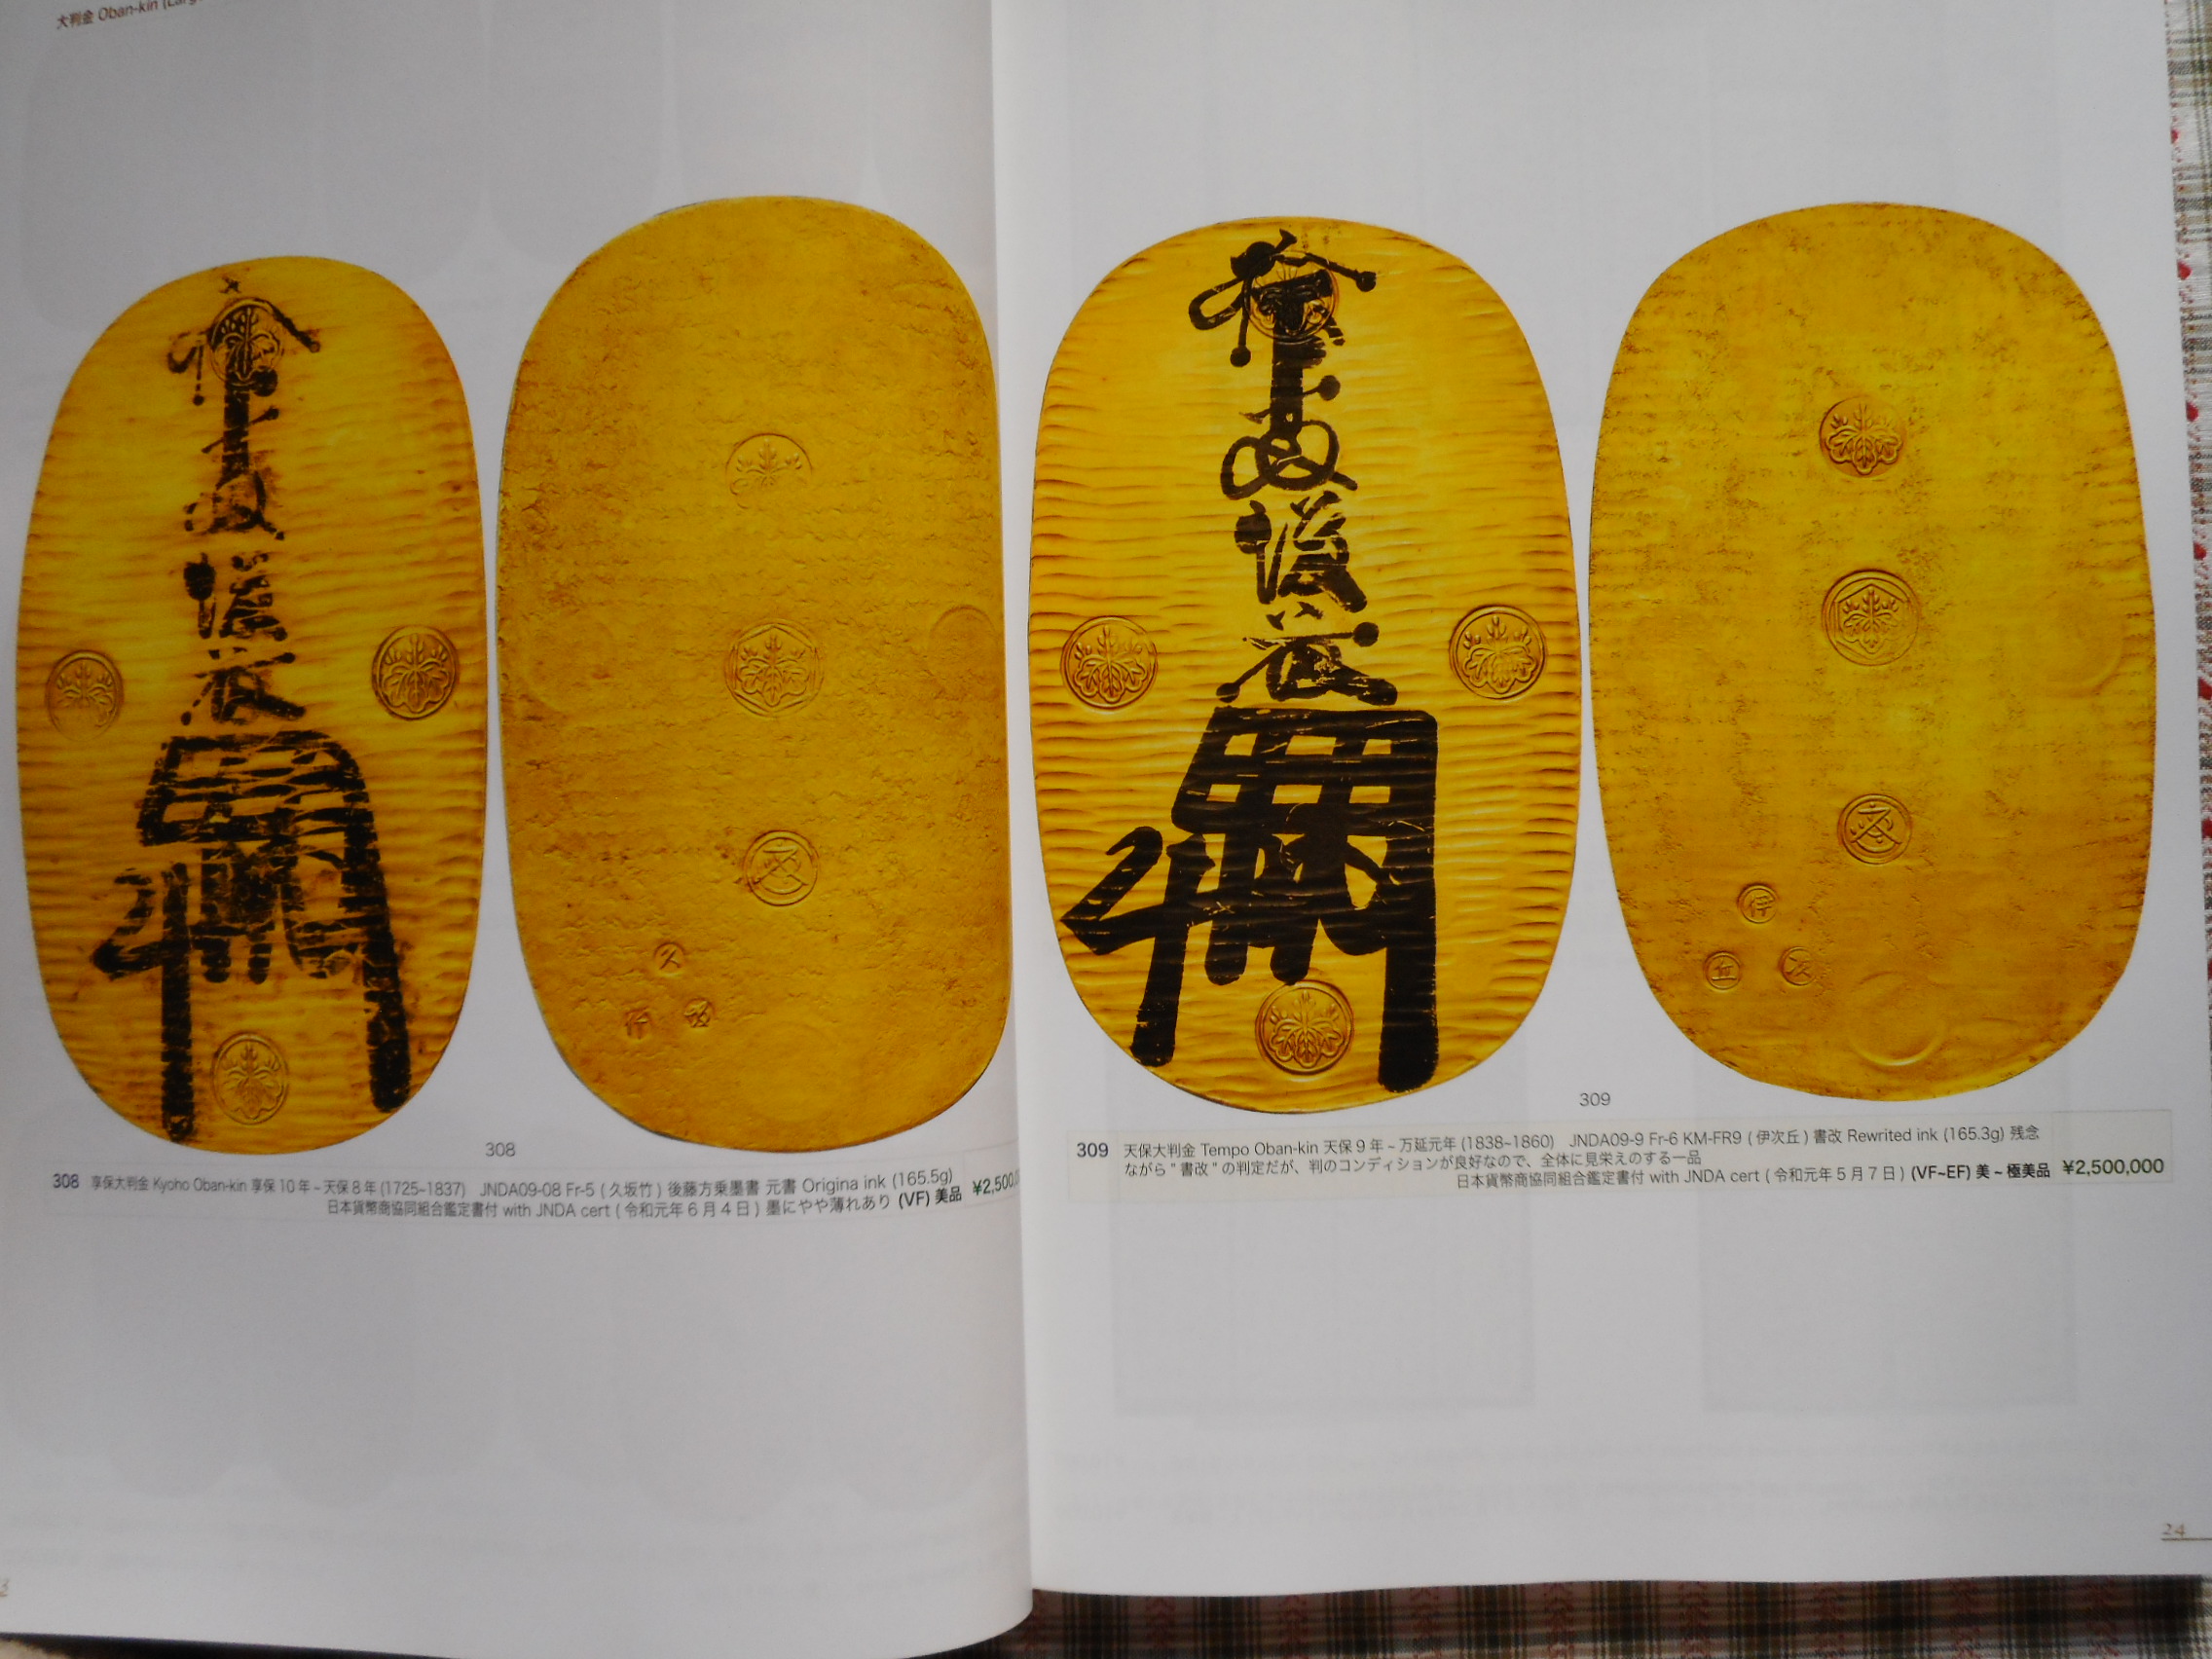 大判金 Oban-kin
308
308 享保大判金 Kyoho Oban-kin 享保10年~天保8年(1725~1837) JNDA09-08 Fr-5 (久坂竹) 後藤方乗墨書 元書 Origina ink (165.5g)
日本貨幣商協同組合鑑定書付 with JNDA cert (令和元年6月4日) 墨にやや薄れあり (VF) 美品 ¥2,500,
309
309 天保大判金 Tempo Oban-kin 天保9年~万延元年(1838~1860) JNDA09-9 Fr-6 KM-FR9 (伊次丘) 書改 Rewrited ink (165.3g) 残念
ながら"書改"の判定だが、判のコンディションが良好なので、全体に見栄えのする一品
日本貨幣商協同組合鑑定書付 with JNDA cert (令和元年5月7日) (VF~EF) 美~極美品 ¥2,500,000
24